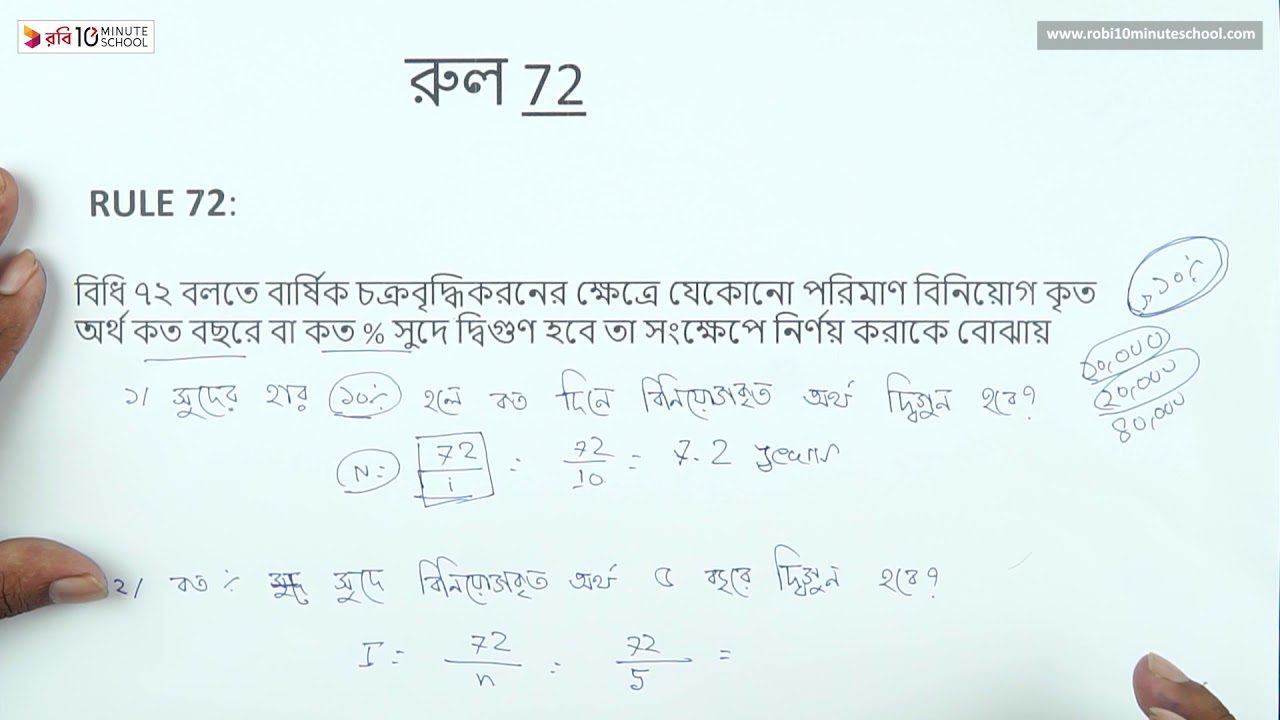 রবি 10 MINUTE SCHOOL
www.robi10minuteschool.com
রুল 72
RULE 72:
বিধি ৭২ বলতে বার্ষিক চক্রবৃদ্ধিকরনের ক্ষেত্রে যেকোনো পরিমাণ বিনিয়োগ কৃত
অর্থ কত বছরে বা কত % সুদে দ্বিগুণ হবে তা সংক্ষেপে নির্ণয় করাকে বোঝায়
১০%
20,000
80,000
১/ সুদের হার ১০% হলে কত দিনে বিনিয়োজকৃত অর্থ দ্বিগুন হবে?
N = 72/i = 72/10 = 7.2 years
২/ কত % সুদে বিনিয়োজকৃত অর্থ ৫ বছরে দ্বিগুন হবে?
I = 72/n = 72/5 =